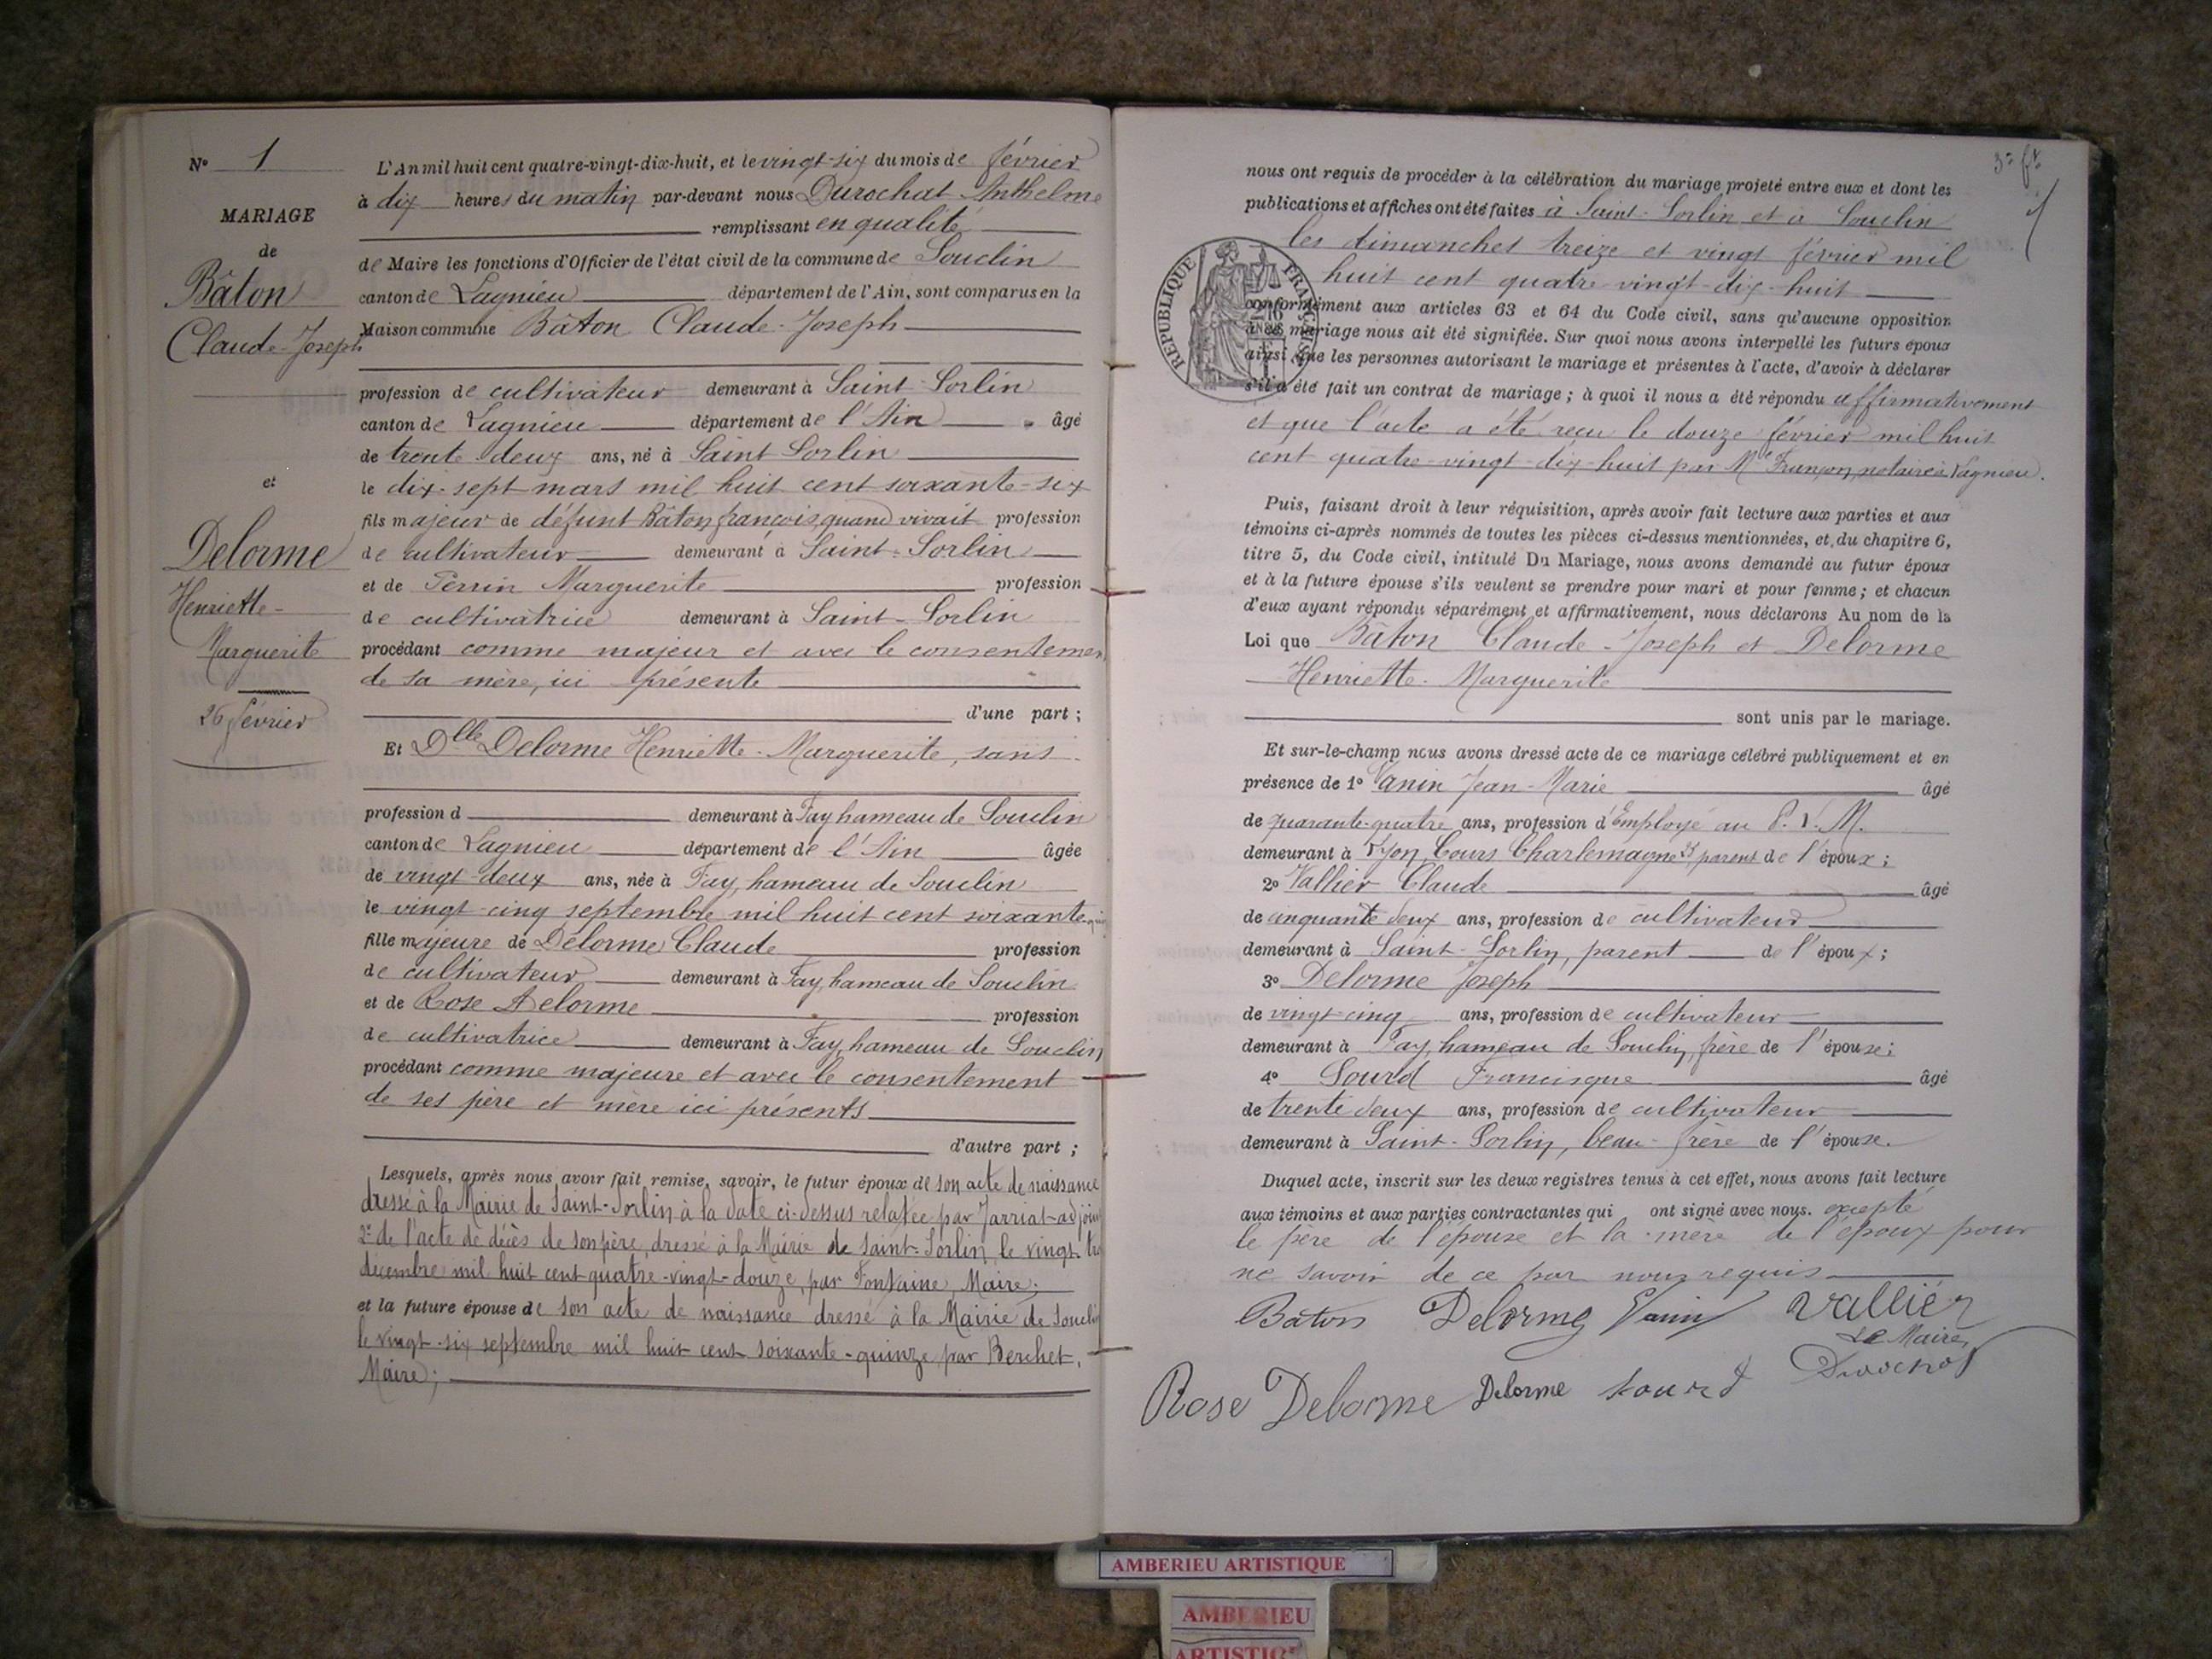 N° 1
MARIAGE
de
Bâton
Claude-Joseph
et
Delorme
Henriette-
Marguerite
26 février
L'An mil huit cent quatre-vingt-dix-huit, et le vingt-six du mois de février
à dix heures du matin par-devant nous Durochat Anthelme
remplissant en qualité
de Maire les fonctions d'Officier de l'état civil de la commune de Souclin
canton de Lagnieu département de l'Ain, sont comparus en la
Maison commune Bâton Claude-Joseph
profession de cultivateur demeurant à Saint-Sorlin
canton de Lagnieu département de l'Ain âgé
de trente-deux ans, né à Saint Sorlin
le dix-sept mars mil huit cent soixante-six
fils majeur de défunt Bâton françois, quand vivait profession
de cultivateur demeurant à Saint-Sorlin
et de Perrin Marguerite profession
de cultivatrice demeurant à Saint-Sorlin
procédant comme majeur et avec le consentemen
de sa mère, ici présente
d'une part ;
Et Dlle Delorme Henriette-Marguerite, sans
profession d demeurant à Fay hameau de Souclin
canton de Lagnieu département de l'Ain âgée
de vingt-deux ans, née à Fay, hameau de Souclin
le vingt-cinq septembre mil huit cent soixante-qui
fille majeure de Delorme Claude profession
de cultivateur demeurant à Fay, hameau de Souclin
et de Rose Delorme profession
de cultivatrice demeurant à Fay, hameau de Souclin
procédant comme majeure et avec le consentement
de ses père et mère ici présents
d'autre part ;
Lesquels, après nous avoir fait remise, savoir, le futur époux de son acte de naissance
dressé à la Mairie de Saint-Sorlin à la date ci-dessus relatée par Jarriat adjoin
2° de l'acte de décès de son père, dressé à la Mairie de Saint-Sorlin, le vingt-tro
décembre mil huit cent quatre-vingt-douze, par Fontaine, Maire;
et la future épouse de son acte de naissance dressé à la Mairie de Souclin
le vingt-six septembre mil huit cent soixante-quinze par Berchet,
Maire;
3e ft.
nous ont requis de procéder à la célébration du mariage projeté entre eux et dont les
publications et affiches ont été faites à Saint-Sorlin et à Souclin
les dimanches treize et vingt février mil
huit cent quatre vingt-dix-huit
RÉPUBLIQUE FRANÇAISE
conformément aux articles 63 et 64 du Code civil, sans qu'aucune opposition
à ce mariage nous ait été signifiée. Sur quoi nous avons interpellé les futurs époux
ainsi que les personnes autorisant le mariage et présentes à l'acte, d'avoir à déclarer
s'il a été fait un contrat de mariage ; à quoi il nous a été répondu affirmativement
et que l'acte a été reçu le douze février mil huit
cent quatre-vingt-dix-huit par Me Françon, notaire à Lagnieu.
Puis, faisant droit à leur réquisition, après avoir fait lecture aux parties et aux
témoins ci-après nommés de toutes les pièces ci-dessus mentionnées, et du chapitre 6,
titre 5, du Code civil, intitulé Du Mariage, nous avons demandé au futur époux
et à la future épouse s'ils veulent se prendre pour mari et pour femme ; et chacun
d'eux ayant répondu séparément et affirmativement, nous déclarons Au nom de la
Loi que Bâton Claude-Joseph et Delorme
Henriette-Marguerite
sont unis par le mariage.
Et sur-le-champ nous avons dressé acte de ce mariage célébré publiquement et en
présence de 1° Vanin Jean-Marie âgé
de quarante-quatre ans, profession d'Employé au P. L. M.
demeurant à Lyon, Cours Charlemagne parent de l'époux ;
2° Vallier Claude âgé
de cinquante deux ans, profession de cultivateur
demeurant à Saint-Sorlin, parent de l'époux ;
3° Delorme Joseph
de vingt-cinq ans, profession de cultivateur
demeurant à Fay, hameau de Souclin, frère de l'épouse ;
4° Sourd Francisque âgé
de trente deux ans, profession de cultivateur
demeurant à Saint-Sorlin, beau-frère de l'épouse.
Duquel acte, inscrit sur les deux registres tenus à cet effet, nous avons fait lecture
aux témoins et aux parties contractantes qui ont signé avec nous. excepté
le père de l'épouse et la mère de l'époux pour
ne savoir de ce par nous requis
Bâton Delorme Vanin Vallier
Le Maire,
Durochat
Rose Delorme Delorme Sourd
AMBERIEU ARTISTIQUE
AMBERIEU
ARTISTIQ